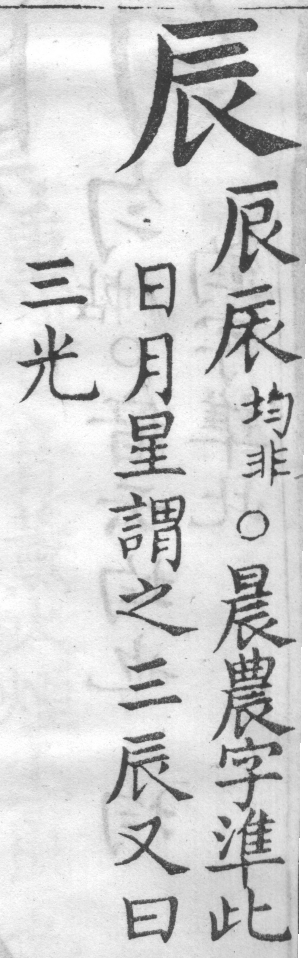 辰
均非○晨農字準此
日月星謂之三辰又曰
三光